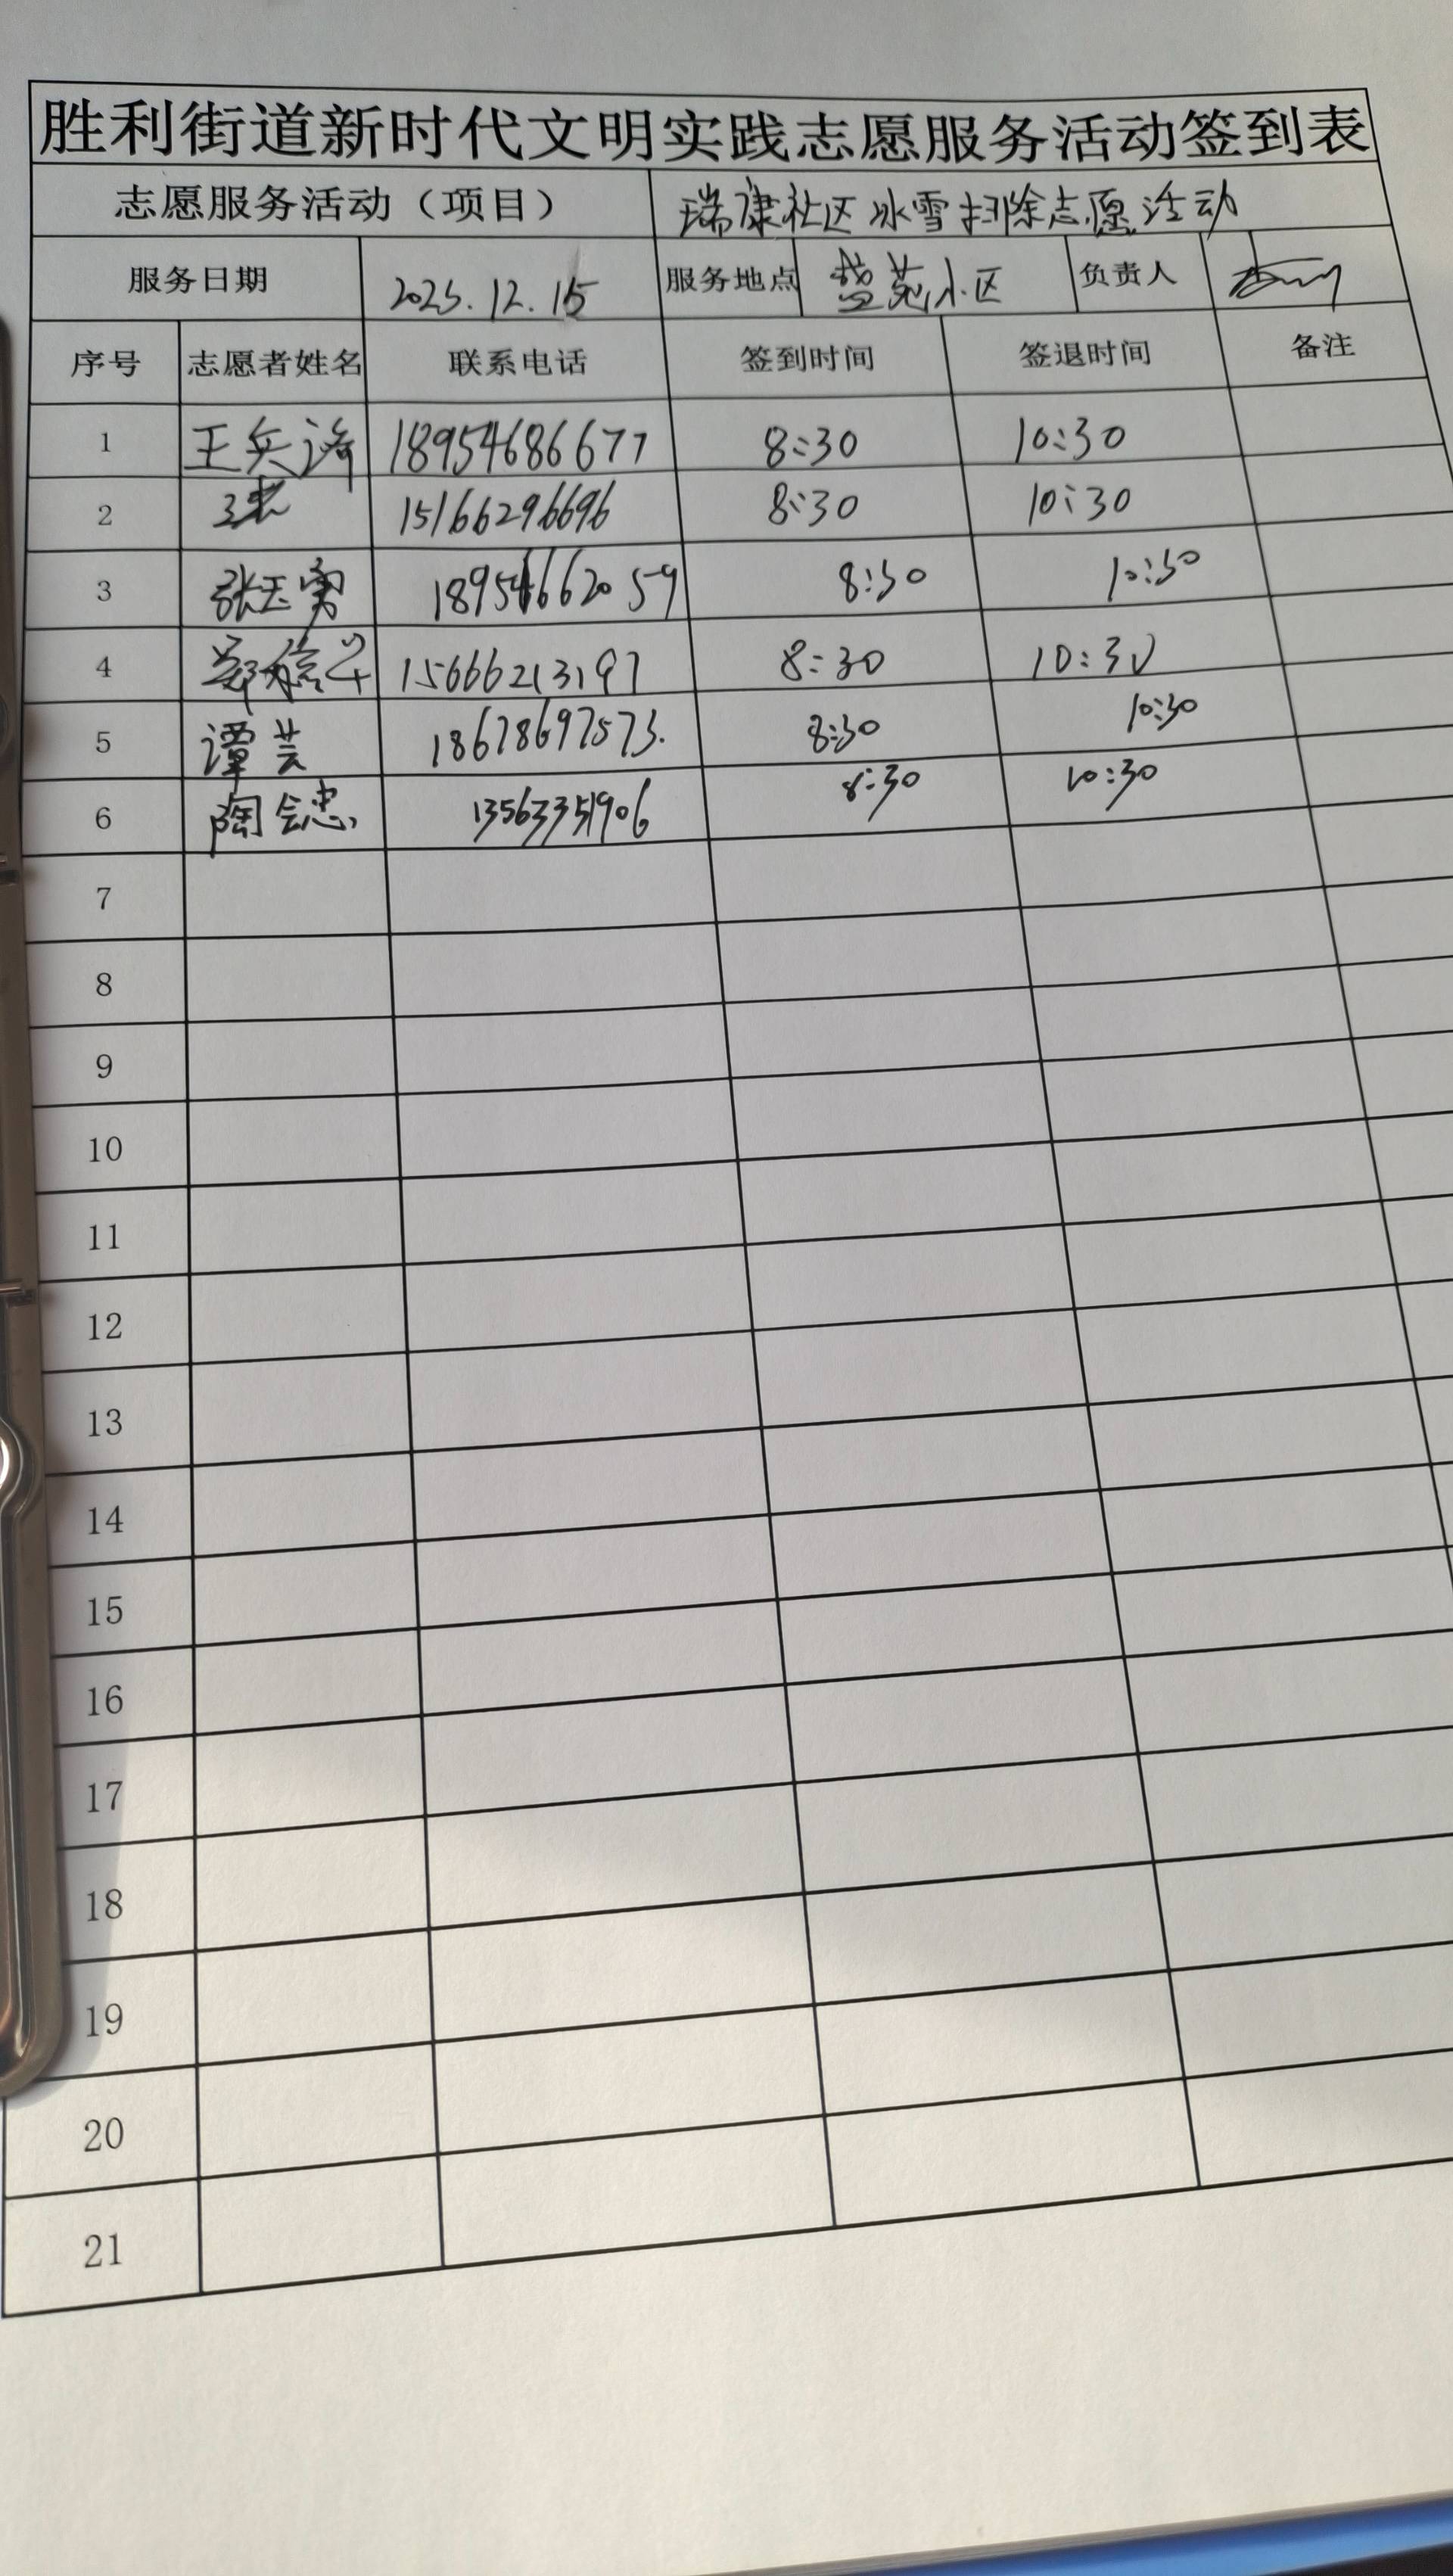 胜利街道新时代文明实践志愿服务活动签到表
志愿服务活动（项目） 瑞康社区冰雪扫除志愿活动
服务日期 2025.12.15 服务地点 盘苑小区 负责人
序号 志愿者姓名 联系电话 签到时间 签退时间 备注
1 王兵 18954686677 8:30 10:30
2 15166296696 8:30 10:30
3 张玉勇 18954662059 8:30 10:30
4 15666213197 8:30 10:30
5 谭芸 18678697573. 8:30 10:30
6 陶会忠 13563351906 8:30 10:30
7
8
9
10
11
12
13
14
15
16
17
18
19
20
21